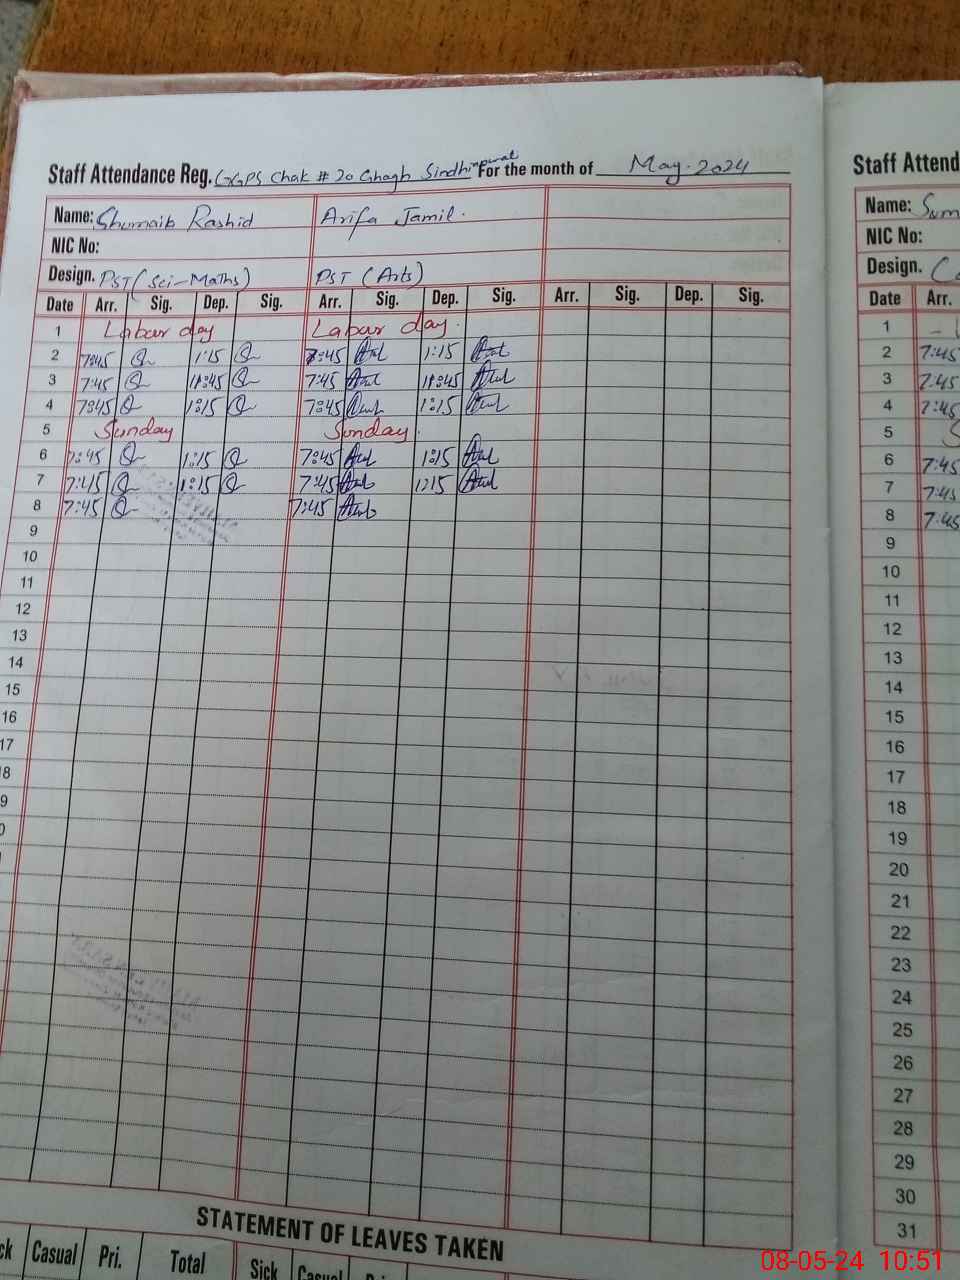 Staff Attendance Reg. GGPS Chak # 20 Ghagh Sindhi For the month of May. 2024
Name: Shumaib Rashid Arifa Jamil.
NIC No:
Design. PST (Sci-Maths) PST (Arts)
Date Arr. Sig. Dep. Sig. Arr. Sig. Dep. Sig. Arr. Sig. Dep. Sig.
1 Labur day Labur day.
2 7:45 1:15 7:45 1:15
3 7:45 11:45 7:45 11:45
4 7:45 1:15 7:45 1:15
5 Sunday Sunday.
6 7:45 1:15 7:45 1:15
7 7:45 1:15 7:45 1:15
8 7:45 7:45
9
10
11
12
13
14
15
16
17
8
9
0
STATEMENT OF LEAVES TAKEN
ck Casual Pri. Total Sick Casual
Staff Attend
Name: Sum
NIC No:
Design.
Date Arr.
1
2 7:45
3 7:45
4 7:45
5 S
6 7:45
7 7:45
8 7:45
9
10
11
12
13
14
15
16
17
18
19
20
21
22
23
24
25
26
27
28
29
30
31
08-05-24 10:51